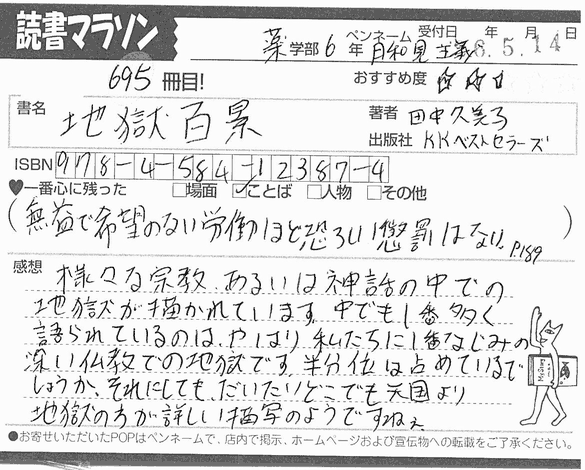 読書マラソン
薬学部 6年 ペンネーム 日和見主義 受付日 8年5月14日
695冊目! おすすめ度 ☆☆☆
書名 地獄百景
著者 田中久美子
出版社 KKベストセラーズ
ISBN 978-4-584-12387-4
♥一番心に残った □場面 ☑ことば □人物 □その他
(無益で希望のない労働ほど恐ろしい懲罰はない。P.189)
感想 様々な宗教、あるいは神話の中での
地獄が描かれています。中でも1番多く
語られているのは、やはり私たちに1番なじみの
深い仏教での地獄です。半分位は占めているで
しょうか。それにしても、だいたいどこでも天国より
地獄の方が詳しい描写のようですねぇ
●お寄せいただいたPOPはペンネームで、店内で掲示、ホームページおよび宣伝物への転載をご了承ください。